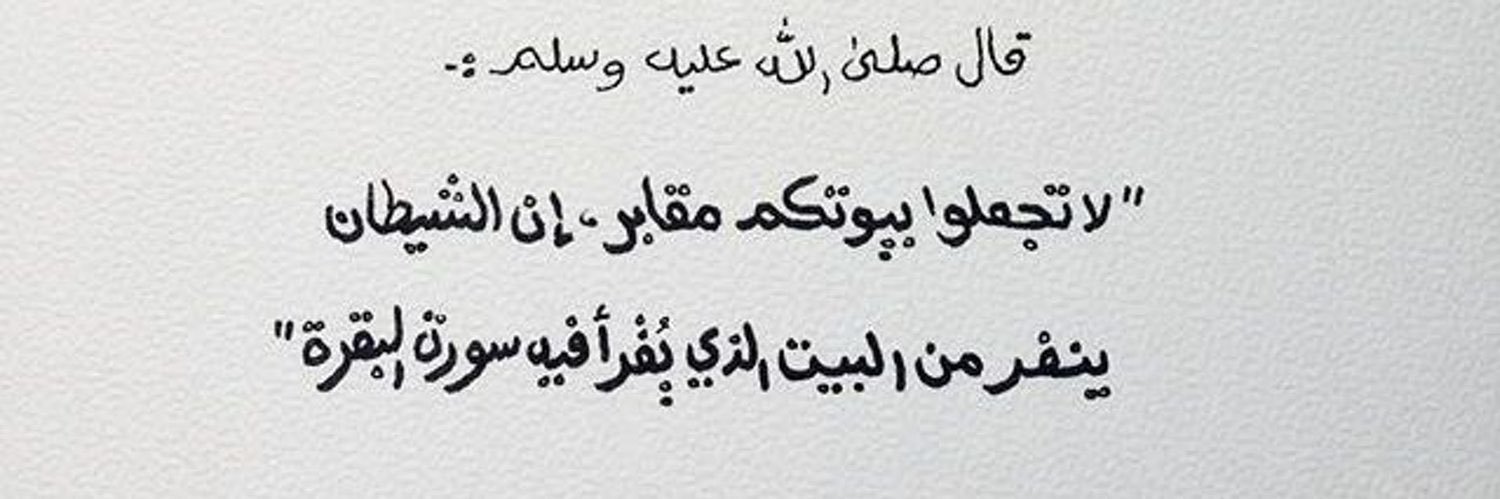 قال صلى الله عليه وسلم :-
"لا تجعلوا بيوتكم مقابر، إن الشيطان
ينفر من البيت الذي يُقرأ فيه سورة البقرة"